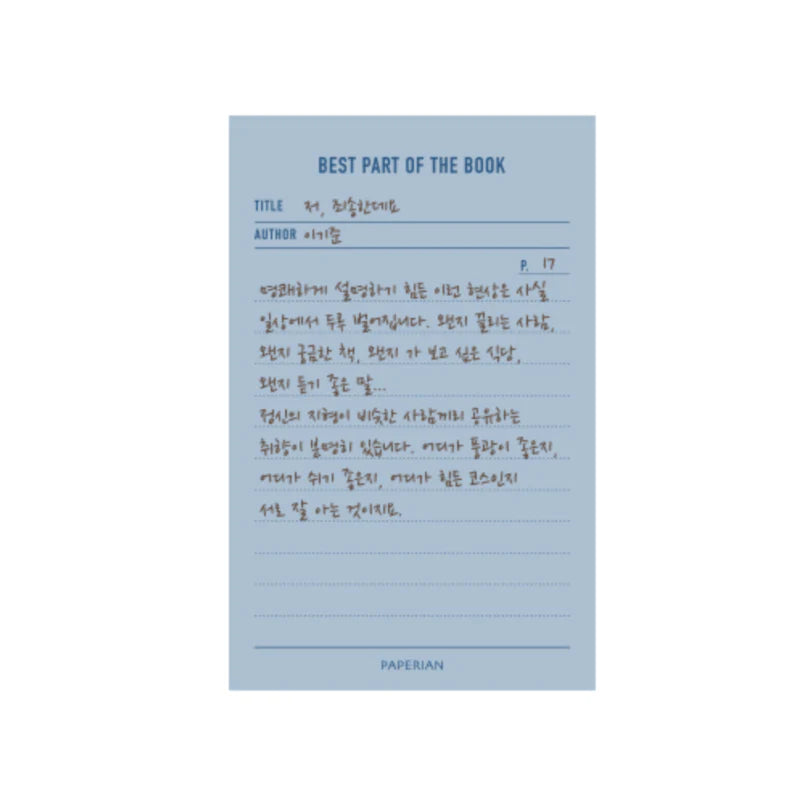 BEST PART OF THE BOOK
TITLE 저, 죄송한데요
AUTHOR 이기준
P. 17
명쾌하게 설명하기 힘든 이런 현상은 사실
일상에서 두루 벌어집니다. 왠지 끌리는 사람,
왠지 궁금한 책, 왠지 가 보고 싶은 식당,
왠지 듣기 좋은 말...
정신의 지형이 비슷한 사람끼리 공유하는
취향이 분명히 있습니다. 어디가 풍광이 좋은지,
어디가 쉬기 좋은지, 어디가 힘든 코스인지
서로 잘 아는 것이지요.
PAPERIAN